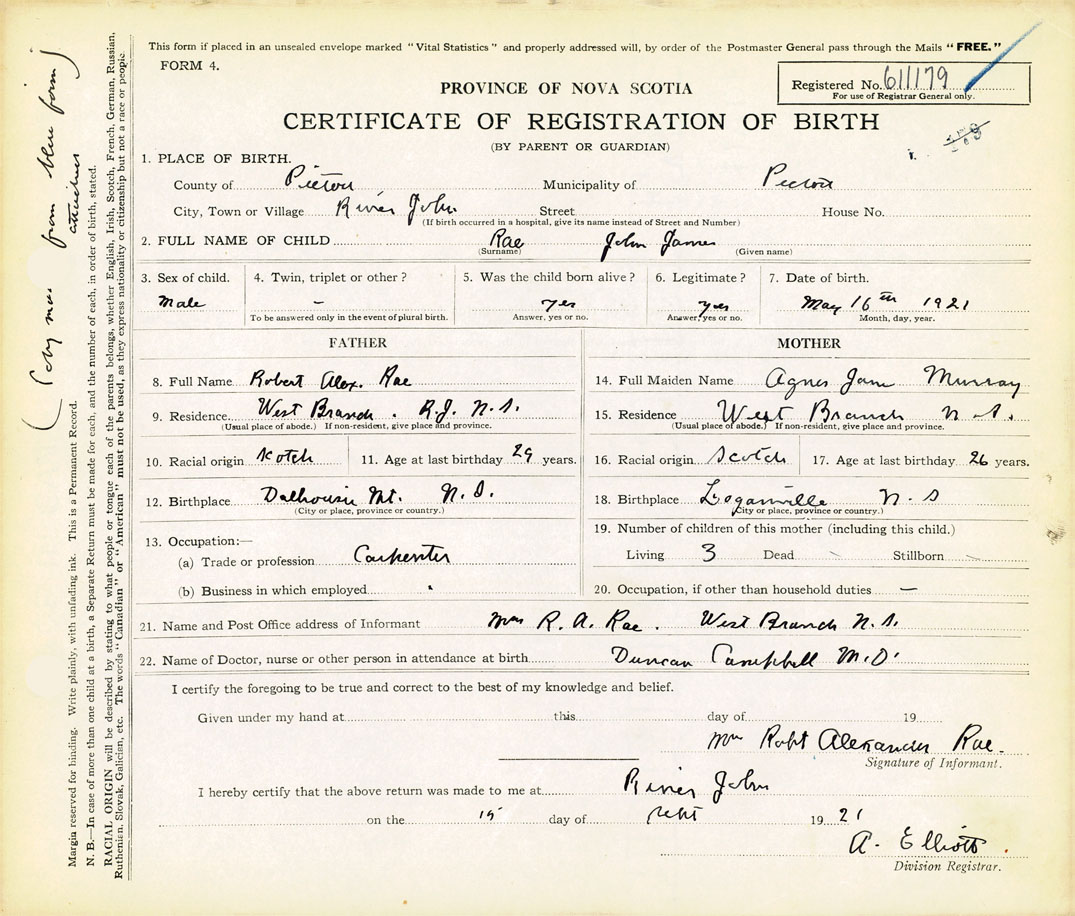 This form if placed in an unsealed envelope marked "Vital Statistics" and properly addressed will, by order of the Postmaster General pass through the Mails "FREE."
FORM 4.
Registered No. 611179
For use of Registrar General only.
PROVINCE OF NOVA SCOTIA
CERTIFICATE OF REGISTRATION OF BIRTH
(BY PARENT OR GUARDIAN)
1. PLACE OF BIRTH.
County of Pictou Municipality of Pictou
City, Town or Village River John Street House No.
(If birth occurred in a hospital, give its name instead of Street and Number)
2. FULL NAME OF CHILD Rae John James
(Surname) (Given name)
3. Sex of child. 4. Twin, triplet or other? 5. Was the child born alive? 6. Legitimate? 7. Date of birth.
Male – yes yes May 16th 1921
To be answered only in the event of plural birth. Answer, yes or no. Answer, yes or no. Month, day, year.
FATHER
8. Full Name Robert Alex. Rae
9. Residence West Branch. R.J. N.S.
(Usual place of abode.) If non-resident, give place and province.
10. Racial origin Scotch 11. Age at last birthday 29 years.
12. Birthplace Dalhousie Mt. N.S.
(City or place, province or country.)
13. Occupation:—
(a) Trade or profession Carpenter
(b) Business in which employed
MOTHER
14. Full Maiden Name Agnes Jane Murray
15. Residence West Branch N.S.
(Usual place of abode.) If non-resident, give place and province.
16. Racial origin Scotch 17. Age at last birthday 26 years.
18. Birthplace Loganville N.S
(City or place, province or country.)
19. Number of children of this mother (including this child.)
Living 3 Dead Stillborn
20. Occupation, if other than household duties —
21. Name and Post Office address of Informant Mrs R. A. Rae. West Branch N.S.
22. Name of Doctor, nurse or other person in attendance at birth Duncan Campbell M.D.
I certify the foregoing to be true and correct to the best of my knowledge and belief.
Given under my hand at this day of 19
Mrs Robt Alexander Rae.
Signature of Informant.
I hereby certify that the above return was made to me at River John
on the 15 day of Sept 1921
A. Elliott
Division Registrar.
from blue form
Margin reserved for binding. Write plainly, with unfading ink. This is a Permanent Record.
N. B.—In case of more than one child at a birth, a Separate Return must be made for each, and the number of each, in order of birth, stated.
RACIAL ORIGIN will be described by stating to what people or tongue each of the parents belongs, whether English, Irish, Scotch, French, German, Russian,
Ruthenian, Slovak, Galician, etc. The words "Canadian" or "American" must not be used, as they express nationality or citizenship but not a race or people.